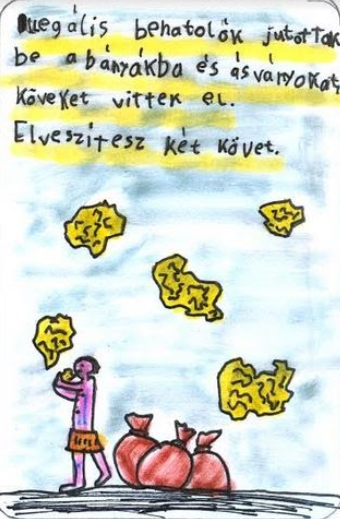 Illegális behatolók jutottak
be a bányákba és ásványokat,
köveket vittek el.
Elveszítesz két követ.